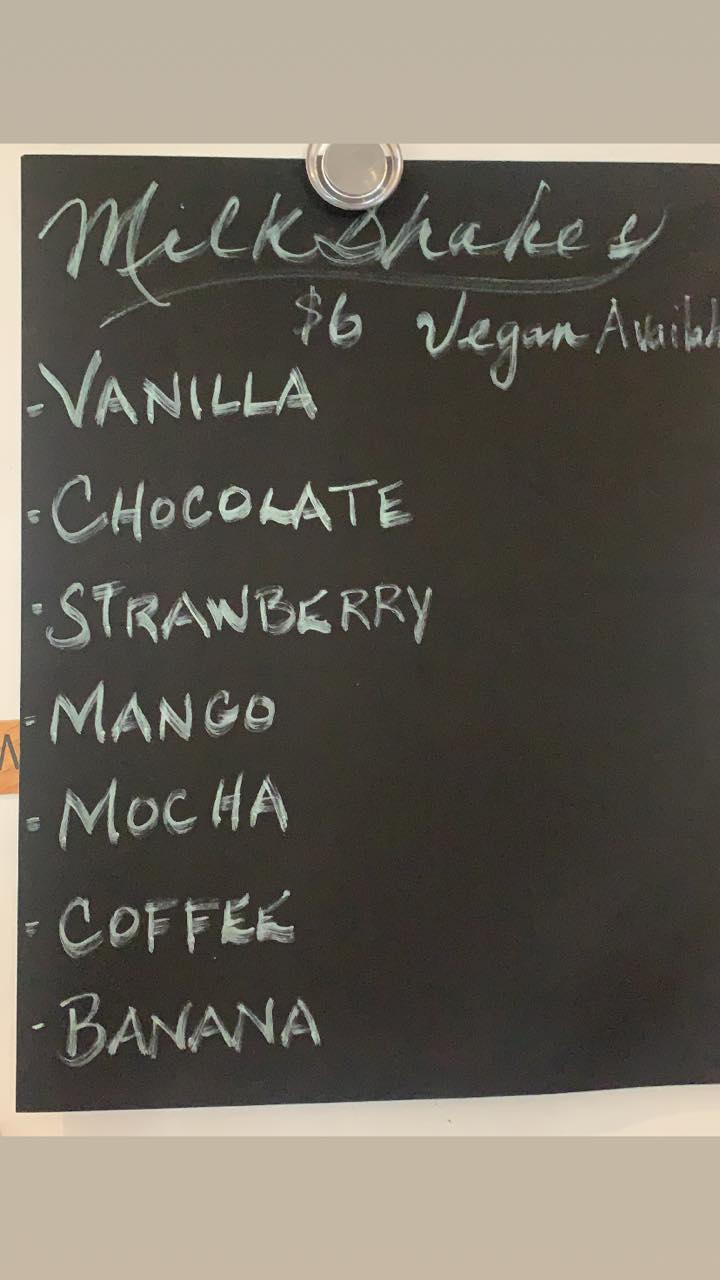 MilkShakes
$6 Vegan Availab
- VANILLA
- CHOCOLATE
- STRAWBERRY
- MANGO
- MOCHA
- COFFEE
- BANANA